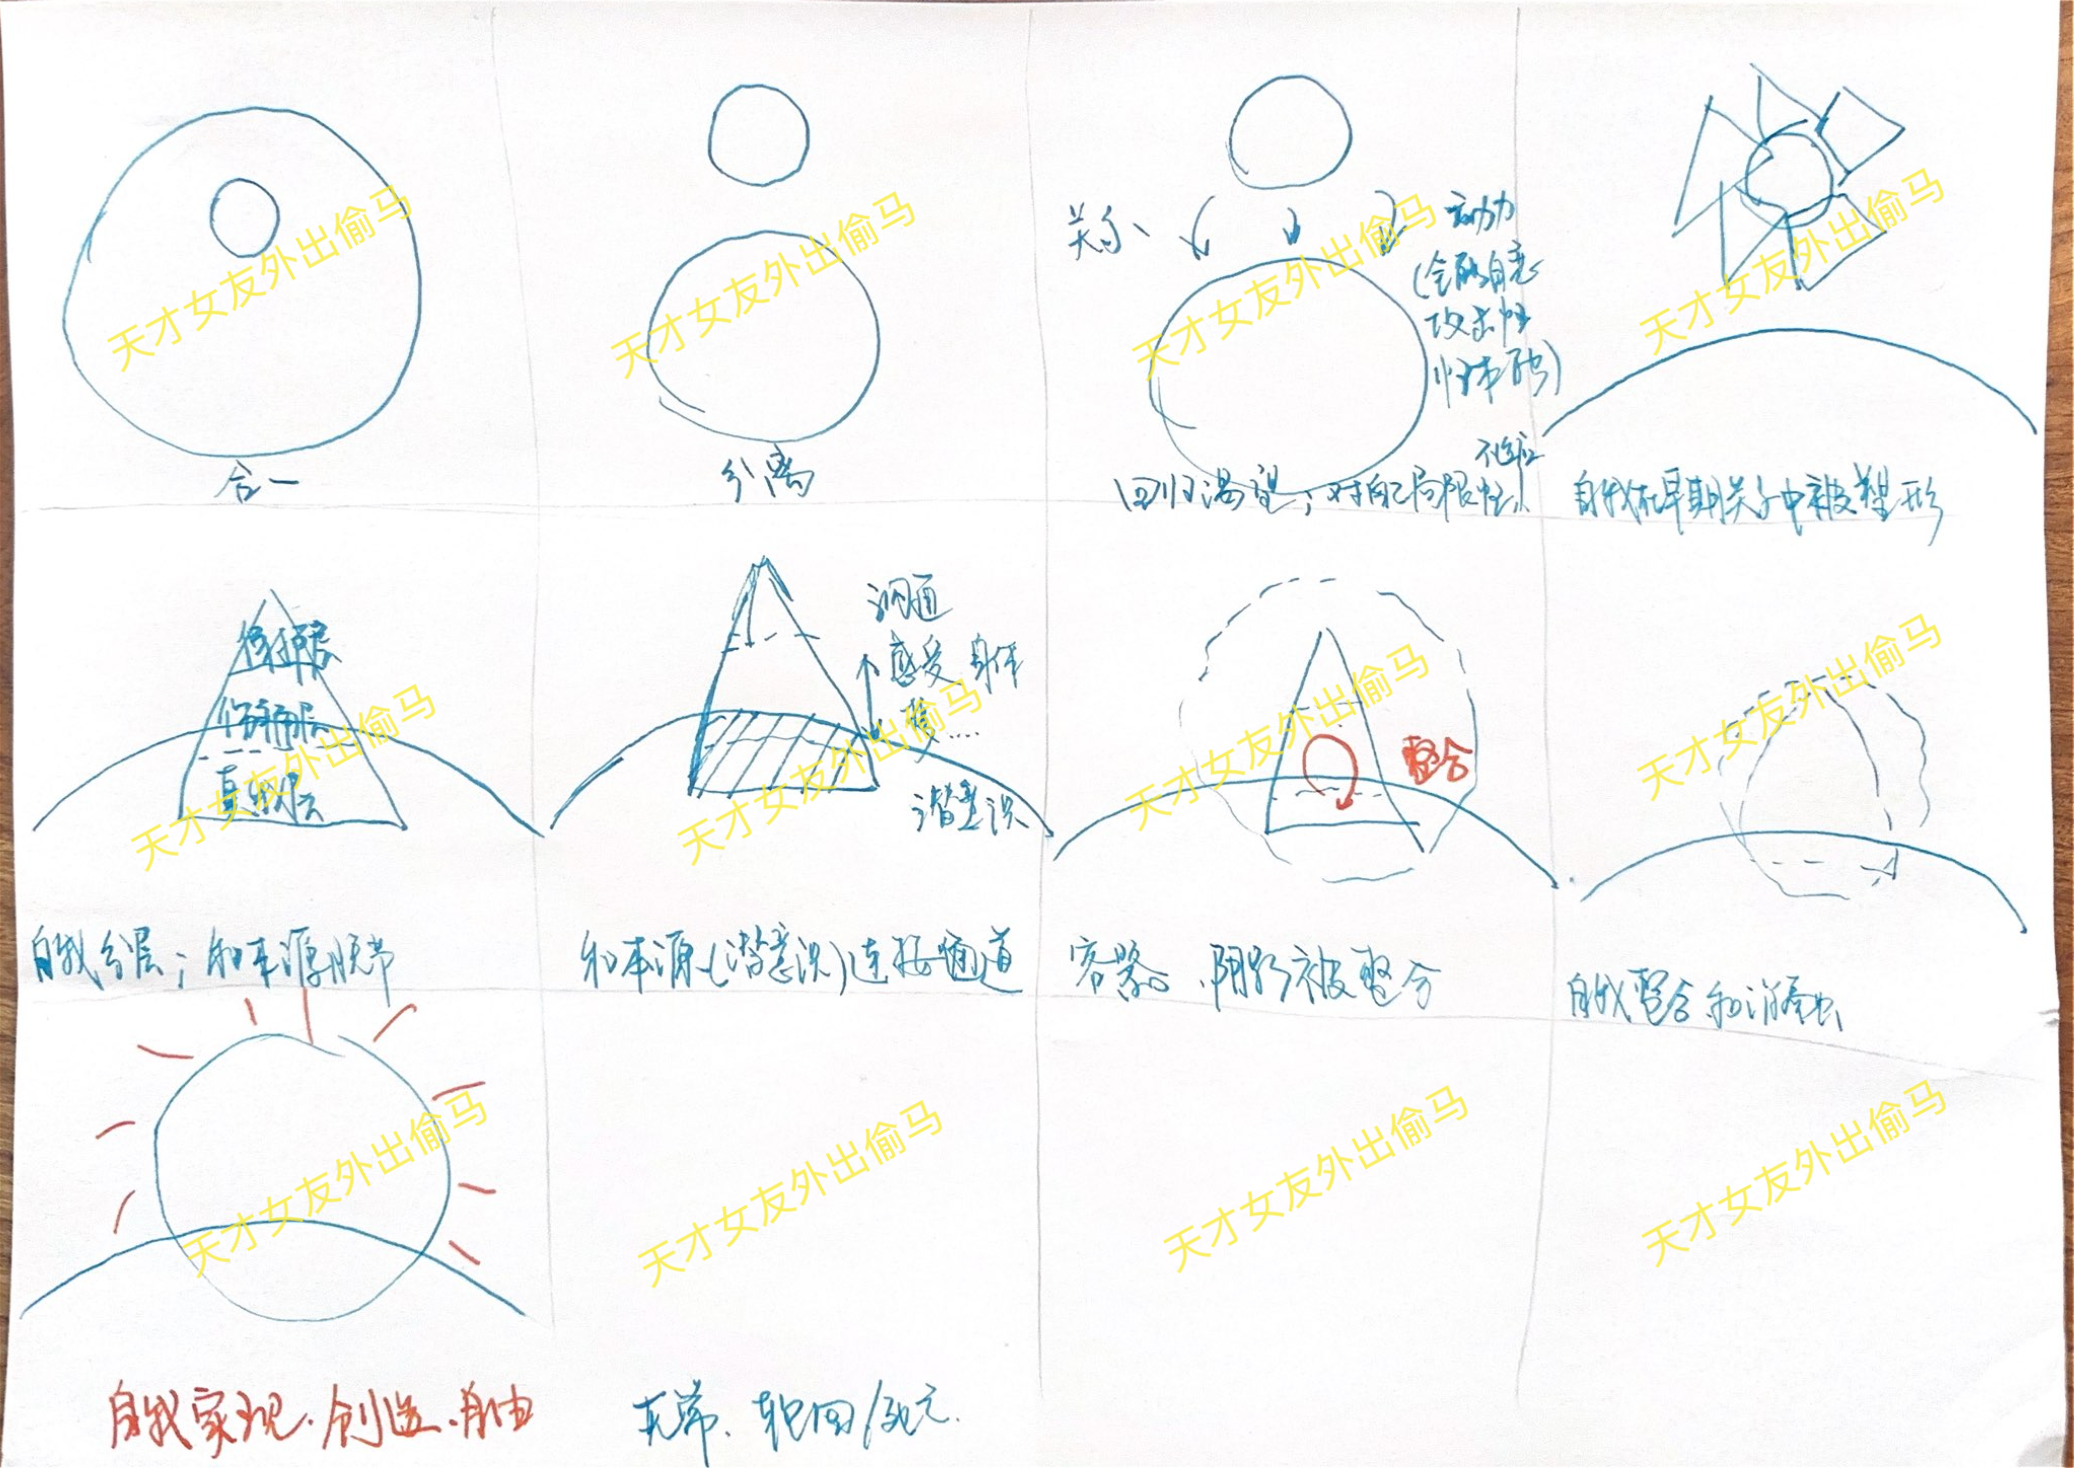 合一
分离
关系、
动力
(全能自恋
攻击性
性本能)
不适应
回归渴望；对自己局限性
自我在早期关系中被塑形
伤痛层
真我层
自我分层；和本源脱节
沟通
感受 身体
潜意识
和本源(潜意识)连接通道
整合
容器、阴影被整合
自我整合和消融
自我实现、创造、自由
无常、轮回/死亡.
天才女友外出偷马
天才女友外出偷马
天才女友外出偷马
天才女友外出偷马
天才女友外出偷马
天才女友外出偷马
天才女友外出偷马
天才女友外出偷马
天才女友外出偷马
天才女友外出偷马
天才女友外出偷马
天才女友外出偷马